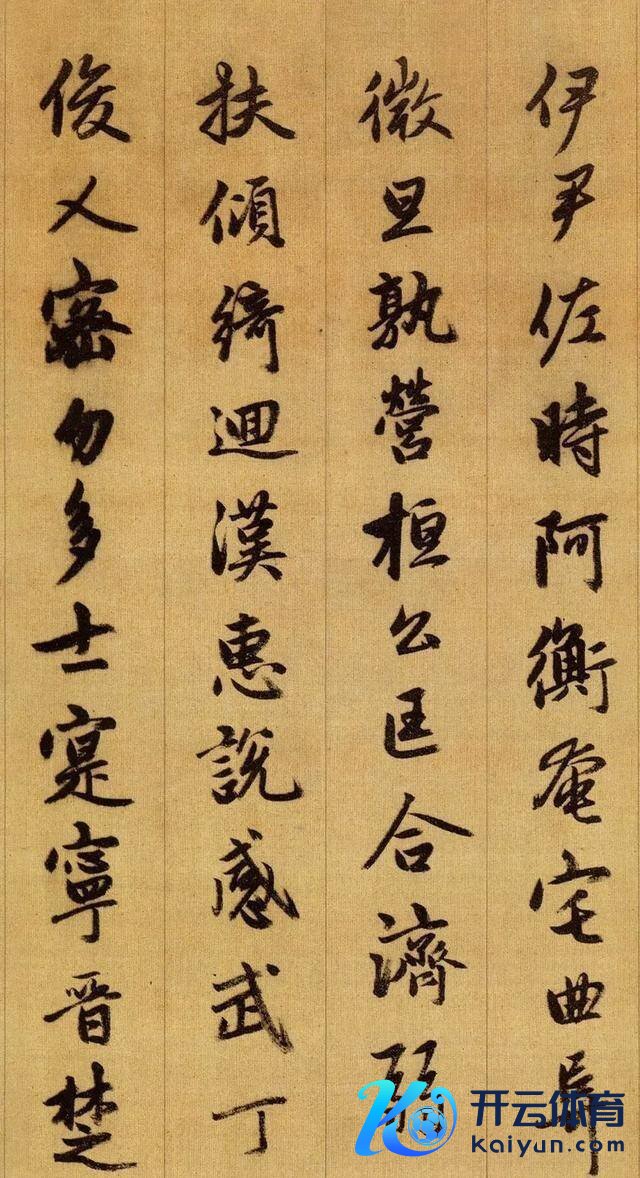 伊尹佐時阿衡奄宅曲阜
微旦孰營桓公匡合濟弱
扶傾綺迴漢惠說感武丁
俊乂密勿多士寔寧晉楚
开云体育
kaiyun.com